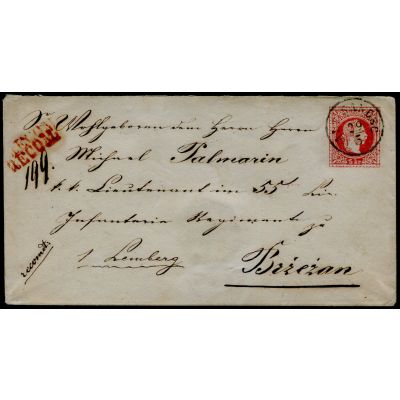 Sr Wohlgeboren dem Herrn Herrn
Michael Palmarin
k.k. Lieutenant im 55 Lin.
Infanterie Regiment zu
p Lemberg
Brzeżan
recomdt
RECOM
199.